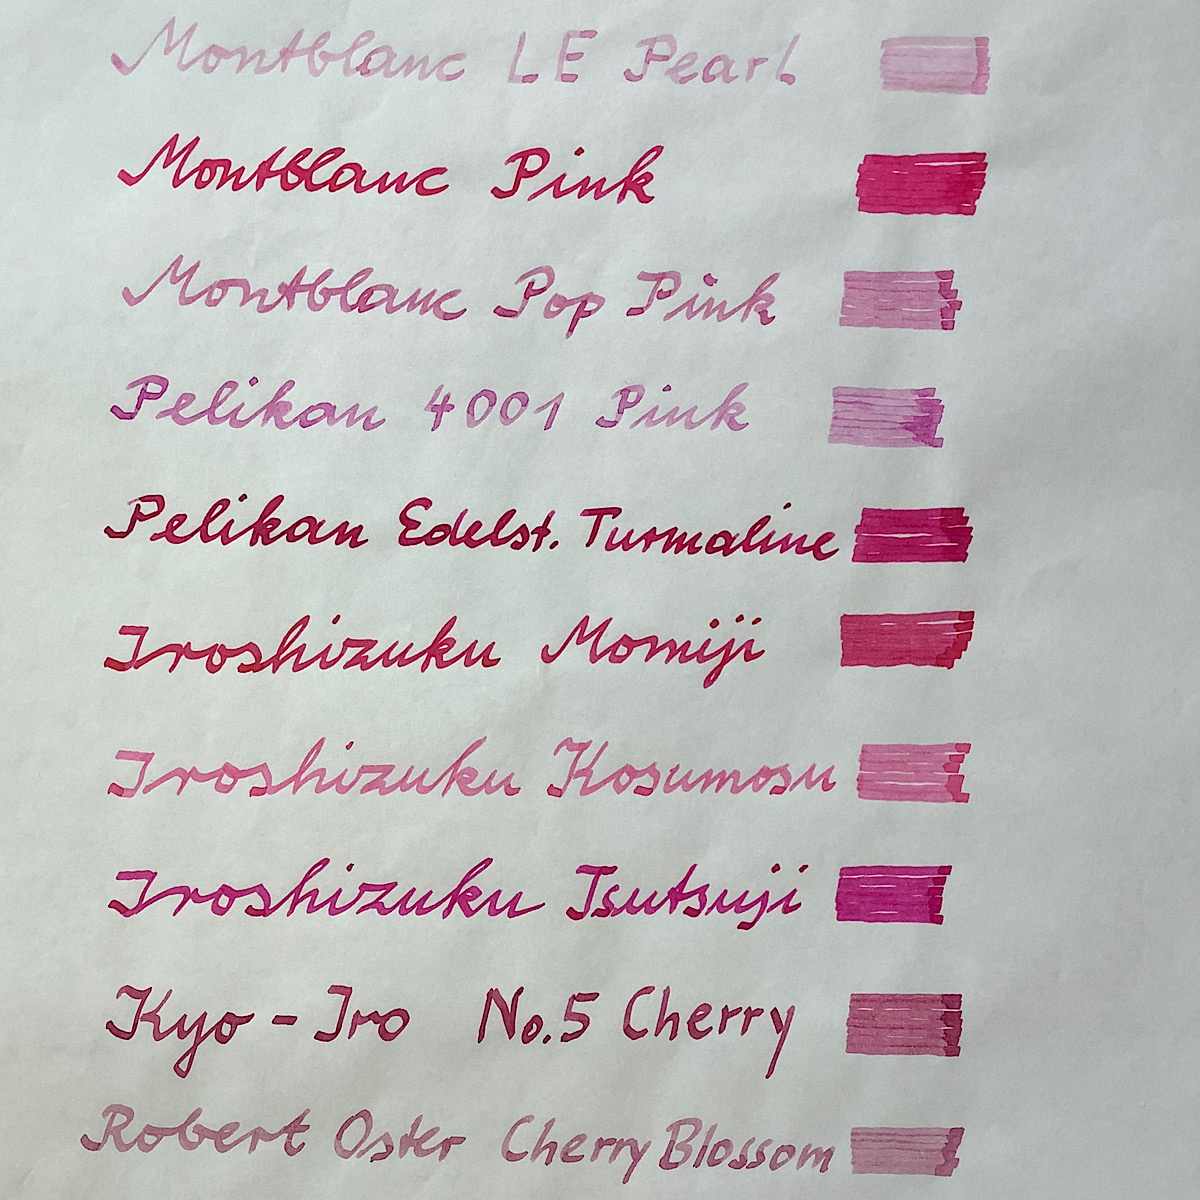 Montblanc LE Pearl
Montblanc Pink
Montblanc Pop Pink
Pelikan 4001 Pink
Pelikan Edelst. Turmaline
Iroshizuku Momiji
Iroshizuku Kosumosu
Iroshizuku Tsutsuji
Kyo-Iro No.5 Cherry
Robert Oster Cherry Blossom